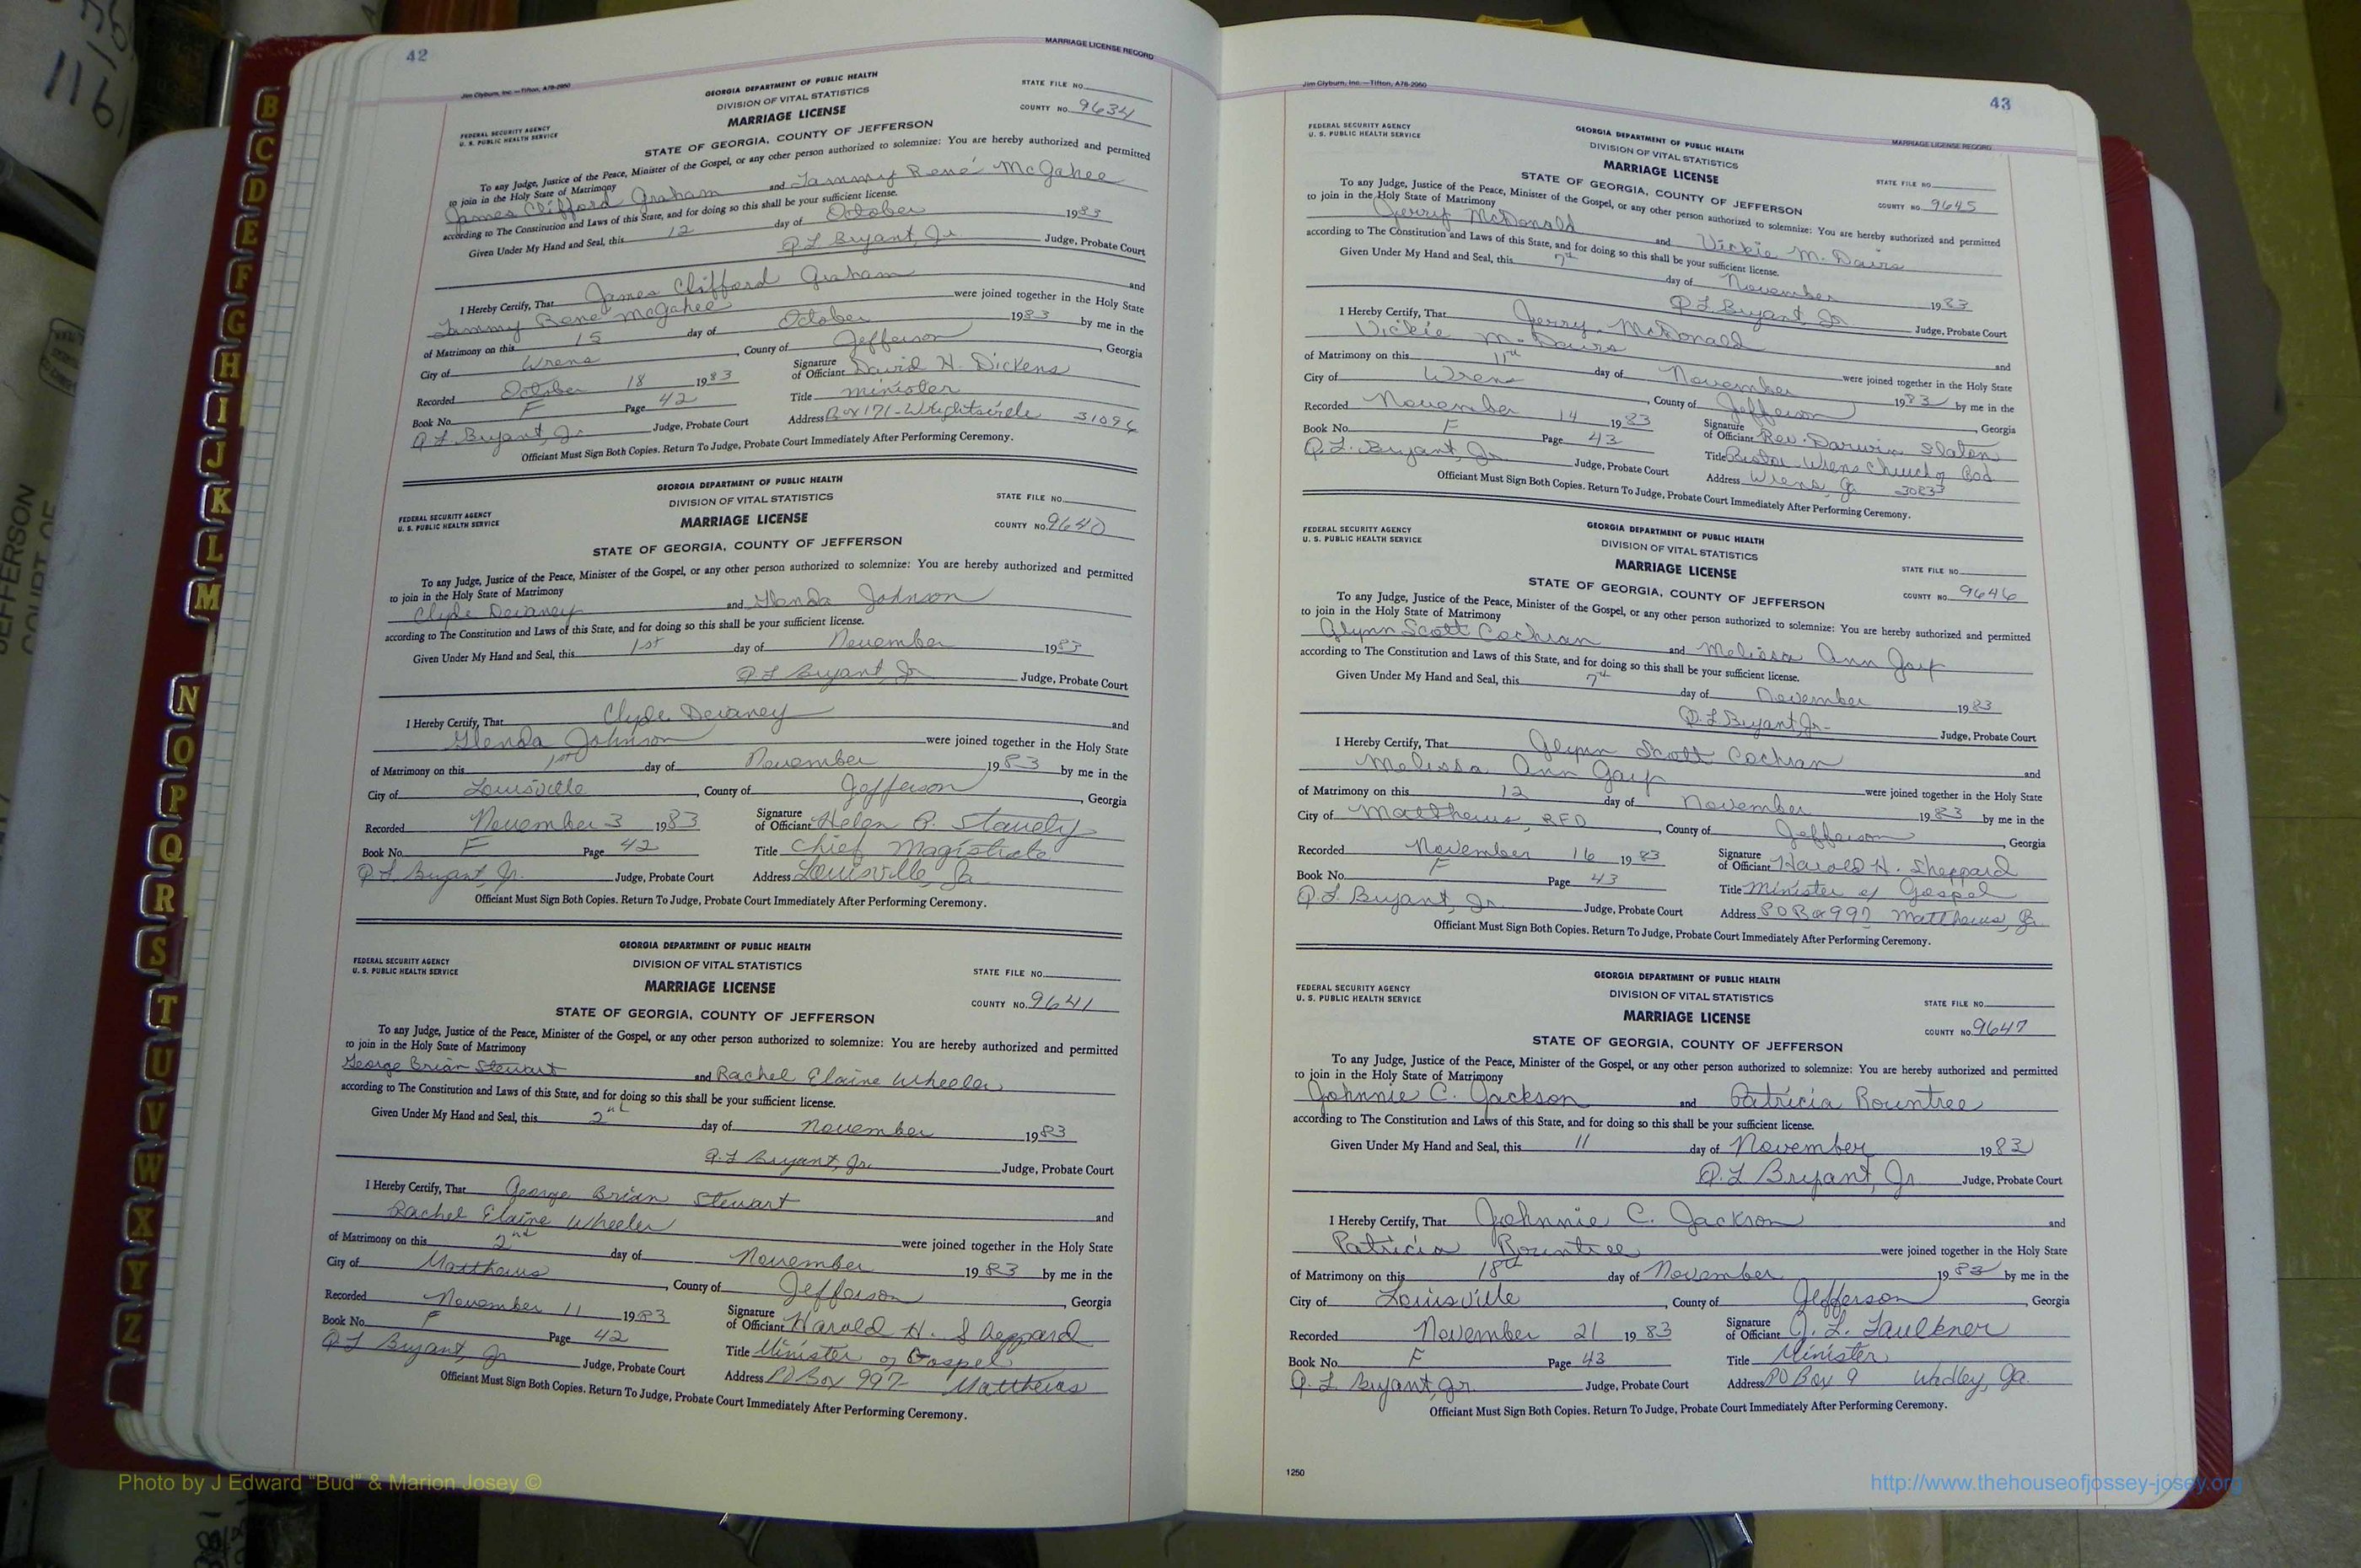 42
MARRIAGE LICENSE RECORD
Jim Clyburn, Inc.—Tifton, A78-2950
GEORGIA DEPARTMENT OF PUBLIC HEALTH
DIVISION OF VITAL STATISTICS
MARRIAGE LICENSE
STATE FILE NO.
COUNTY NO. 9634
FEDERAL SECURITY AGENCY
U. S. PUBLIC HEALTH SERVICE
STATE OF GEORGIA, COUNTY OF JEFFERSON
To any Judge, Justice of the Peace, Minister of the Gospel, or any other person authorized to solemnize: You are hereby authorized and permitted
to join in the Holy State of Matrimony
James Clifford Graham and Tammy René McGahee
according to The Constitution and Laws of this State, and for doing so this shall be your sufficient license.
Given Under My Hand and Seal, this 12 day of October 1983
Q L Bryant, Jr. Judge, Probate Court
I Hereby Certify, That James Clifford Graham and
Tammy René McGahee were joined together in the Holy State
of Matrimony on this 15 day of October 1983 by me in the
City of Wrens, County of Jefferson, Georgia
Recorded October 18 1983 Signature of Officiant David H. Dickens
Book No. F Page 42 Title minister
Q. L. Bryant, Jr. Judge, Probate Court Address Box 171-Wrightsville 31096
Officiant Must Sign Both Copies. Return To Judge, Probate Court Immediately After Performing Ceremony.
GEORGIA DEPARTMENT OF PUBLIC HEALTH
DIVISION OF VITAL STATISTICS
MARRIAGE LICENSE
STATE FILE NO.
COUNTY NO. 9640
FEDERAL SECURITY AGENCY
U. S. PUBLIC HEALTH SERVICE
STATE OF GEORGIA, COUNTY OF JEFFERSON
To any Judge, Justice of the Peace, Minister of the Gospel, or any other person authorized to solemnize: You are hereby authorized and permitted
to join in the Holy State of Matrimony
Clyde and Glenda Johnson
according to The Constitution and Laws of this State, and for doing so this shall be your sufficient license.
Given Under My Hand and Seal, this 1st day of November 1983
Q L Bryant, Jr Judge, Probate Court
I Hereby Certify, That Clyde and
Glenda Johnson were joined together in the Holy State
of Matrimony on this 1st day of November 1983 by me in the
City of Louisville, County of Jefferson, Georgia
Recorded November 3 1983 Signature of Officiant Helen P.
Book No. F Page 42 Title Chief Magistrate
Q L Bryant, Jr. Judge, Probate Court Address Louisville, Ga
Officiant Must Sign Both Copies. Return To Judge, Probate Court Immediately After Performing Ceremony.
GEORGIA DEPARTMENT OF PUBLIC HEALTH
DIVISION OF VITAL STATISTICS
MARRIAGE LICENSE
STATE FILE NO.
COUNTY NO. 9641
FEDERAL SECURITY AGENCY
U. S. PUBLIC HEALTH SERVICE
STATE OF GEORGIA, COUNTY OF JEFFERSON
To any Judge, Justice of the Peace, Minister of the Gospel, or any other person authorized to solemnize: You are hereby authorized and permitted
to join in the Holy State of Matrimony
George Brian Stewart and Rachel Elaine Wheeler
according to The Constitution and Laws of this State, and for doing so this shall be your sufficient license.
Given Under My Hand and Seal, this 2nd day of November 1983
Q. L Bryant, Jr. Judge, Probate Court
I Hereby Certify, That George Brian Stewart and
Rachel Elaine Wheeler were joined together in the Holy State
of Matrimony on this 2nd day of November 1983 by me in the
City of Matthews, County of Jefferson, Georgia
Recorded November 11 1983 Signature of Officiant Harold H. Sheppard
Book No. F Page 42 Title Minister of Gospel
Q L Bryant, Jr Judge, Probate Court Address PO Box 997 Matthews
Officiant Must Sign Both Copies. Return To Judge, Probate Court Immediately After Performing Ceremony.
43
MARRIAGE LICENSE RECORD
Jim Clyburn, Inc.—Tifton, A78-2950
FEDERAL SECURITY AGENCY
U. S. PUBLIC HEALTH SERVICE
GEORGIA DEPARTMENT OF PUBLIC HEALTH
DIVISION OF VITAL STATISTICS
MARRIAGE LICENSE
STATE FILE NO.
COUNTY NO. 9645
STATE OF GEORGIA, COUNTY OF JEFFERSON
To any Judge, Justice of the Peace, Minister of the Gospel, or any other person authorized to solemnize: You are hereby authorized and permitted
to join in the Holy State of Matrimony
Jerry McDonald and Vickie M. Davis
according to The Constitution and Laws of this State, and for doing so this shall be your sufficient license.
Given Under My Hand and Seal, this 7th day of November 1983
Q L Bryant Jr Judge, Probate Court
I Hereby Certify, That Jerry McDonald and
Vickie M. Davis were joined together in the Holy State
of Matrimony on this 11th day of November 1983 by me in the
City of Wrens, County of Jefferson, Georgia
Recorded November 14 1983 Signature of Officiant Rev. Darwin Slaton
Book No. F Page 43 Title Pastor-Wrens Church of God
Q. L. Bryant, Jr Judge, Probate Court Address Wrens, Ga 30833
Officiant Must Sign Both Copies. Return To Judge, Probate Court Immediately After Performing Ceremony.
FEDERAL SECURITY AGENCY
U. S. PUBLIC HEALTH SERVICE
GEORGIA DEPARTMENT OF PUBLIC HEALTH
DIVISION OF VITAL STATISTICS
MARRIAGE LICENSE
STATE FILE NO.
COUNTY NO. 9646
STATE OF GEORGIA, COUNTY OF JEFFERSON
To any Judge, Justice of the Peace, Minister of the Gospel, or any other person authorized to solemnize: You are hereby authorized and permitted
to join in the Holy State of Matrimony
Glynn Scott Cochran and Melissa Ann Gay
according to The Constitution and Laws of this State, and for doing so this shall be your sufficient license.
Given Under My Hand and Seal, this 7th day of November 1983
Q. L Bryant, Jr. Judge, Probate Court
I Hereby Certify, That Glynn Scott Cochran and
Melissa Ann Gay were joined together in the Holy State
of Matrimony on this 12 day of November 1983 by me in the
City of Matthews, RFD, County of Jefferson, Georgia
Recorded November 16 1983 Signature of Officiant Harold H. Sheppard
Book No. F Page 43 Title Minister of Gospel
Q. L. Bryant, Jr. Judge, Probate Court Address P O Box 997 Matthews, Ga.
Officiant Must Sign Both Copies. Return To Judge, Probate Court Immediately After Performing Ceremony.
FEDERAL SECURITY AGENCY
U. S. PUBLIC HEALTH SERVICE
GEORGIA DEPARTMENT OF PUBLIC HEALTH
DIVISION OF VITAL STATISTICS
MARRIAGE LICENSE
STATE FILE NO.
COUNTY NO. 9647
STATE OF GEORGIA, COUNTY OF JEFFERSON
To any Judge, Justice of the Peace, Minister of the Gospel, or any other person authorized to solemnize: You are hereby authorized and permitted
to join in the Holy State of Matrimony
Johnnie C. Jackson and Patricia Rountree
according to The Constitution and Laws of this State, and for doing so this shall be your sufficient license.
Given Under My Hand and Seal, this 11 day of November 1983
Q. L Bryant, Jr Judge, Probate Court
I Hereby Certify, That Johnnie C. Jackson and
Patricia Rountree were joined together in the Holy State
of Matrimony on this 18th day of November 1983 by me in the
City of Louisville, County of Jefferson, Georgia
Recorded November 21 1983 Signature of Officiant J. L. Faulkner
Book No. F Page 43 Title Minister
Q. L Bryant, Jr. Judge, Probate Court Address PO Box 9 Wadley, Ga.
Officiant Must Sign Both Copies. Return To Judge, Probate Court Immediately After Performing Ceremony.
1250
B
C
D
E
F
G
H
I
J
K
L
M
N
O
P
Q
R
S
T
U
V
W
X
Y
Z
JEFFERSON
COURT OF
116
Photo by J Edward "Bud" & Marion Josey ©
http://www.thehouseofjossey-josey.org